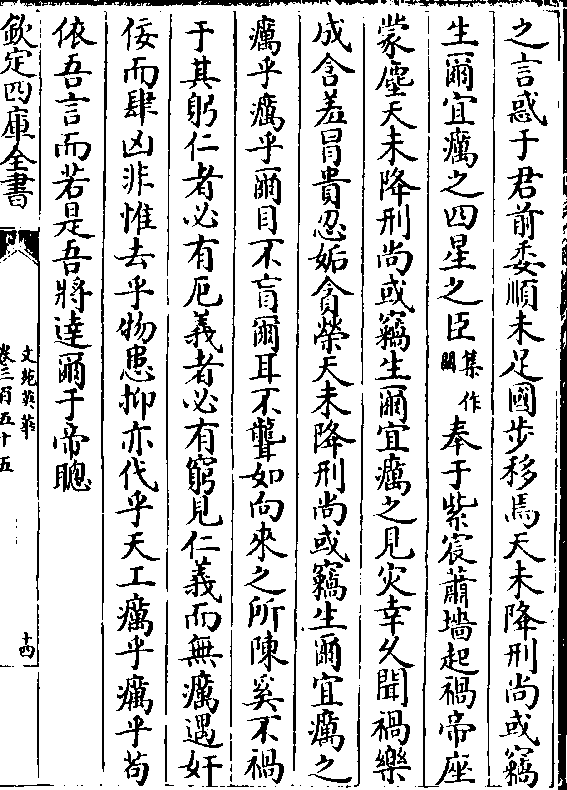 之言惑于君前委順未足國步移焉天未降刑尚或竊
生爾宜癘之四星之臣集作閽奉于紫宸蕭墻起禍帝座
蒙塵天未降刑尚或竊生爾宜癘之見災幸久聞禍樂
成含羞冒貴忍妬貪榮天未降刑尚或竊生爾宜癘之
癘乎癘乎爾目不盲爾耳不聾如向來之所陳奚不禍
于其躬仁者必有厄義者必有窮見仁義而無癘遇奸
佞而肆凶非惟去乎物患抑亦代乎天工癘乎癘乎苟
依吾言而若是吾將達爾于帝聰
欽定四庫全書
文苑英華
卷三百五十五
十四